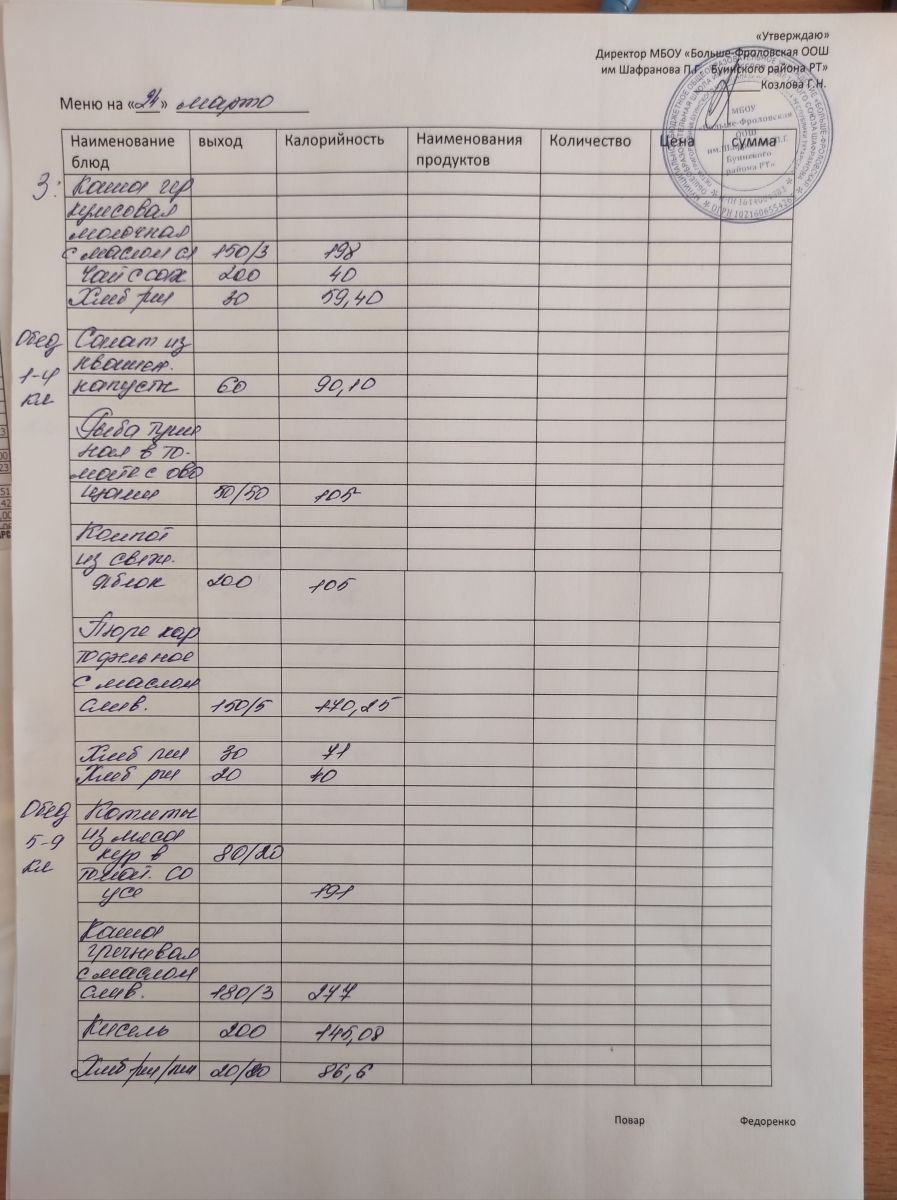 «Утверждаю»
Директор МБОУ «Больше-Фроловская ООШ
им Шафранова П.Г. Буинского района РТ»
Козлова Г.Н.
Меню на «24» марта
Наименование блюд выход Калорийность Наименования продуктов Количество Цена сумма
З: Каша гер
кулесовая
молочная
с маслом сл 150/3 198
Чай с сах 200 40
Хлеб рж 30 59,40
Обед Салат из
1-4 квашен.
кл капусты 60 90,10
Рыба туше
ная в то-
мате с ово
щами 50/50 105
Компот
из свеж.
яблок 200 105
Пюре кар
тофельное
с маслом
слив. 150/5 170,25
Хлеб пш 30 71
Хлеб рж 20 40
Обед Котлеты
5-9 из мяса
кл кур в 80/20
томат. со
усе 191
Каша
гречневая
с маслом
слив. 180/3 277
Кисель 200 145,08
Хлеб рж/пш 20/20 86,6
Повар Федоренко
МБОУ
«Больше-Фроловская
ООШ
им. Шафранова П.Г.
Буинского
района РТ»